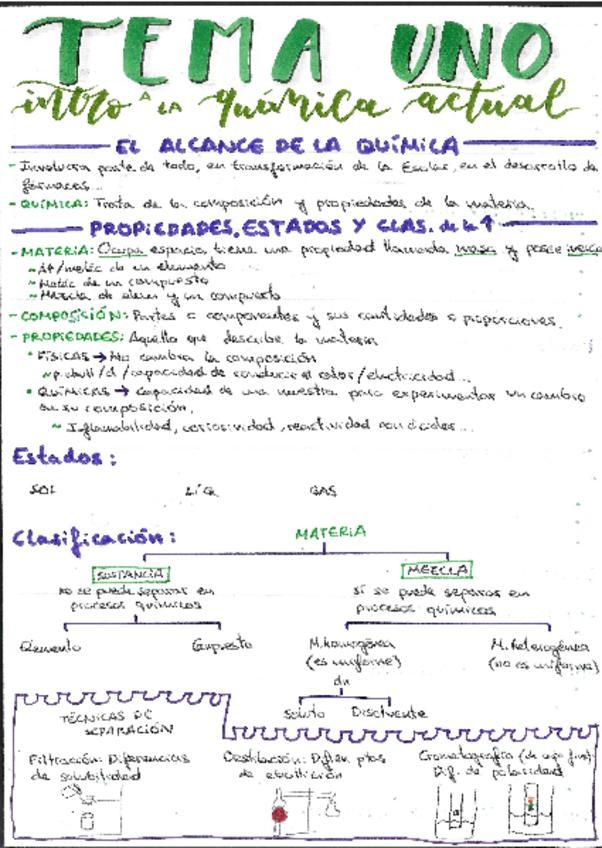 TEMA UNO
intro A LA química actual
EL ALCANCE DE LA QUÍMICA
- Involucra parte de todo, en transformación de la Escolar, en el desarrollo de
fármacos...
- QUÍMICA: Trata de la composición y propiedades de la materia.
PROPIEDADES, ESTADOS Y CLAS. de la ↑
- MATERIA: Ocupa espacio, tiene una propiedad llamada masa y posee inercia
~ At/moléc de un elemento
~ Moléc de un compuesto
~ Mezcla de elem y un compuesto
- COMPOSICIÓN: Partes o componentes y sus cantidades o proporciones.
- PROPIEDADES: Aquello que describe la materia
• FÍSICAS → No cambia la composición
~ p.ebull/d/capacidad de conducir el calor/electricidad...
• QUÍMICAS → Capacidad de una muestra para experimentar un cambio
en su composición.
~ Inflamabilidad, corrosividad, reactividad con ácidos...
Estados:
SOL LÍQ GAS
Clasificación: MATERIA
SUSTANCIA MEZCLA
no se puede separar en sí se puede separar en
procesos químicos procesos químicos
Elemento Compuesto M.homogénea M. heterogénea
(es uniforme) (no es uniforme)
dn
Soluto Disolvente
TÉCNICAS DE
SEPARACIÓN
Filtración: Diferencias Destilación: Diferen. ptos Cromatografía
de solubilidad de ebullición Dif. de polaridad